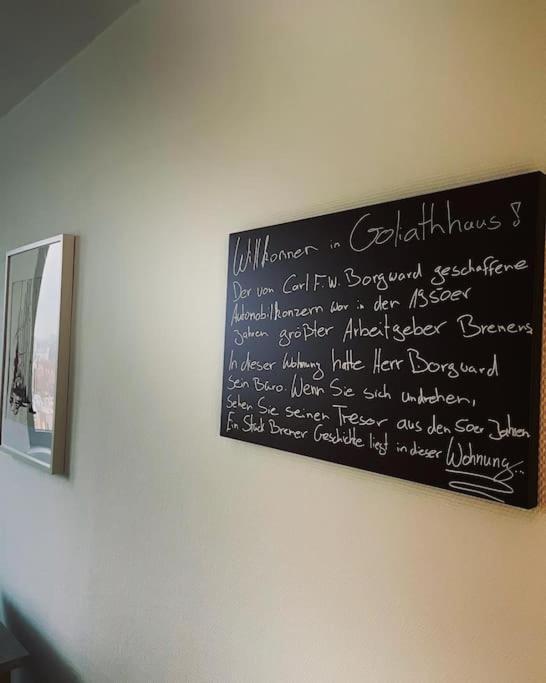 Willkommen in Goliathhaus!
Der von Carl F.W. Borgward geschaffene
Automobilkonzern war in den 1950er
Jahren größter Arbeitgeber Bremens
In dieser Wohnung hatte Herr Borgward
sein Büro. Wenn Sie sich umdrehen,
sehen Sie seinen Tresor aus den 50er Jahren
Ein Stück Bremer Geschichte liegt in dieser Wohnung...